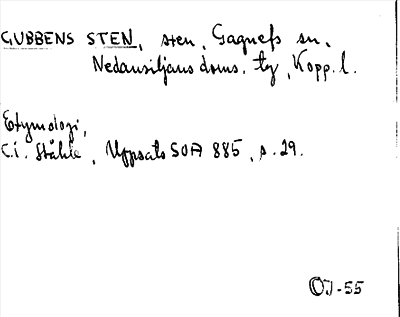 GUBBENS STEN, sten, Gagnefs sn,
Nedansiljans doms. tg, Kopp. l.
Etymologi,
C.I. Ståhle, Uppsats SOA 885, s. 29.
OJ-55